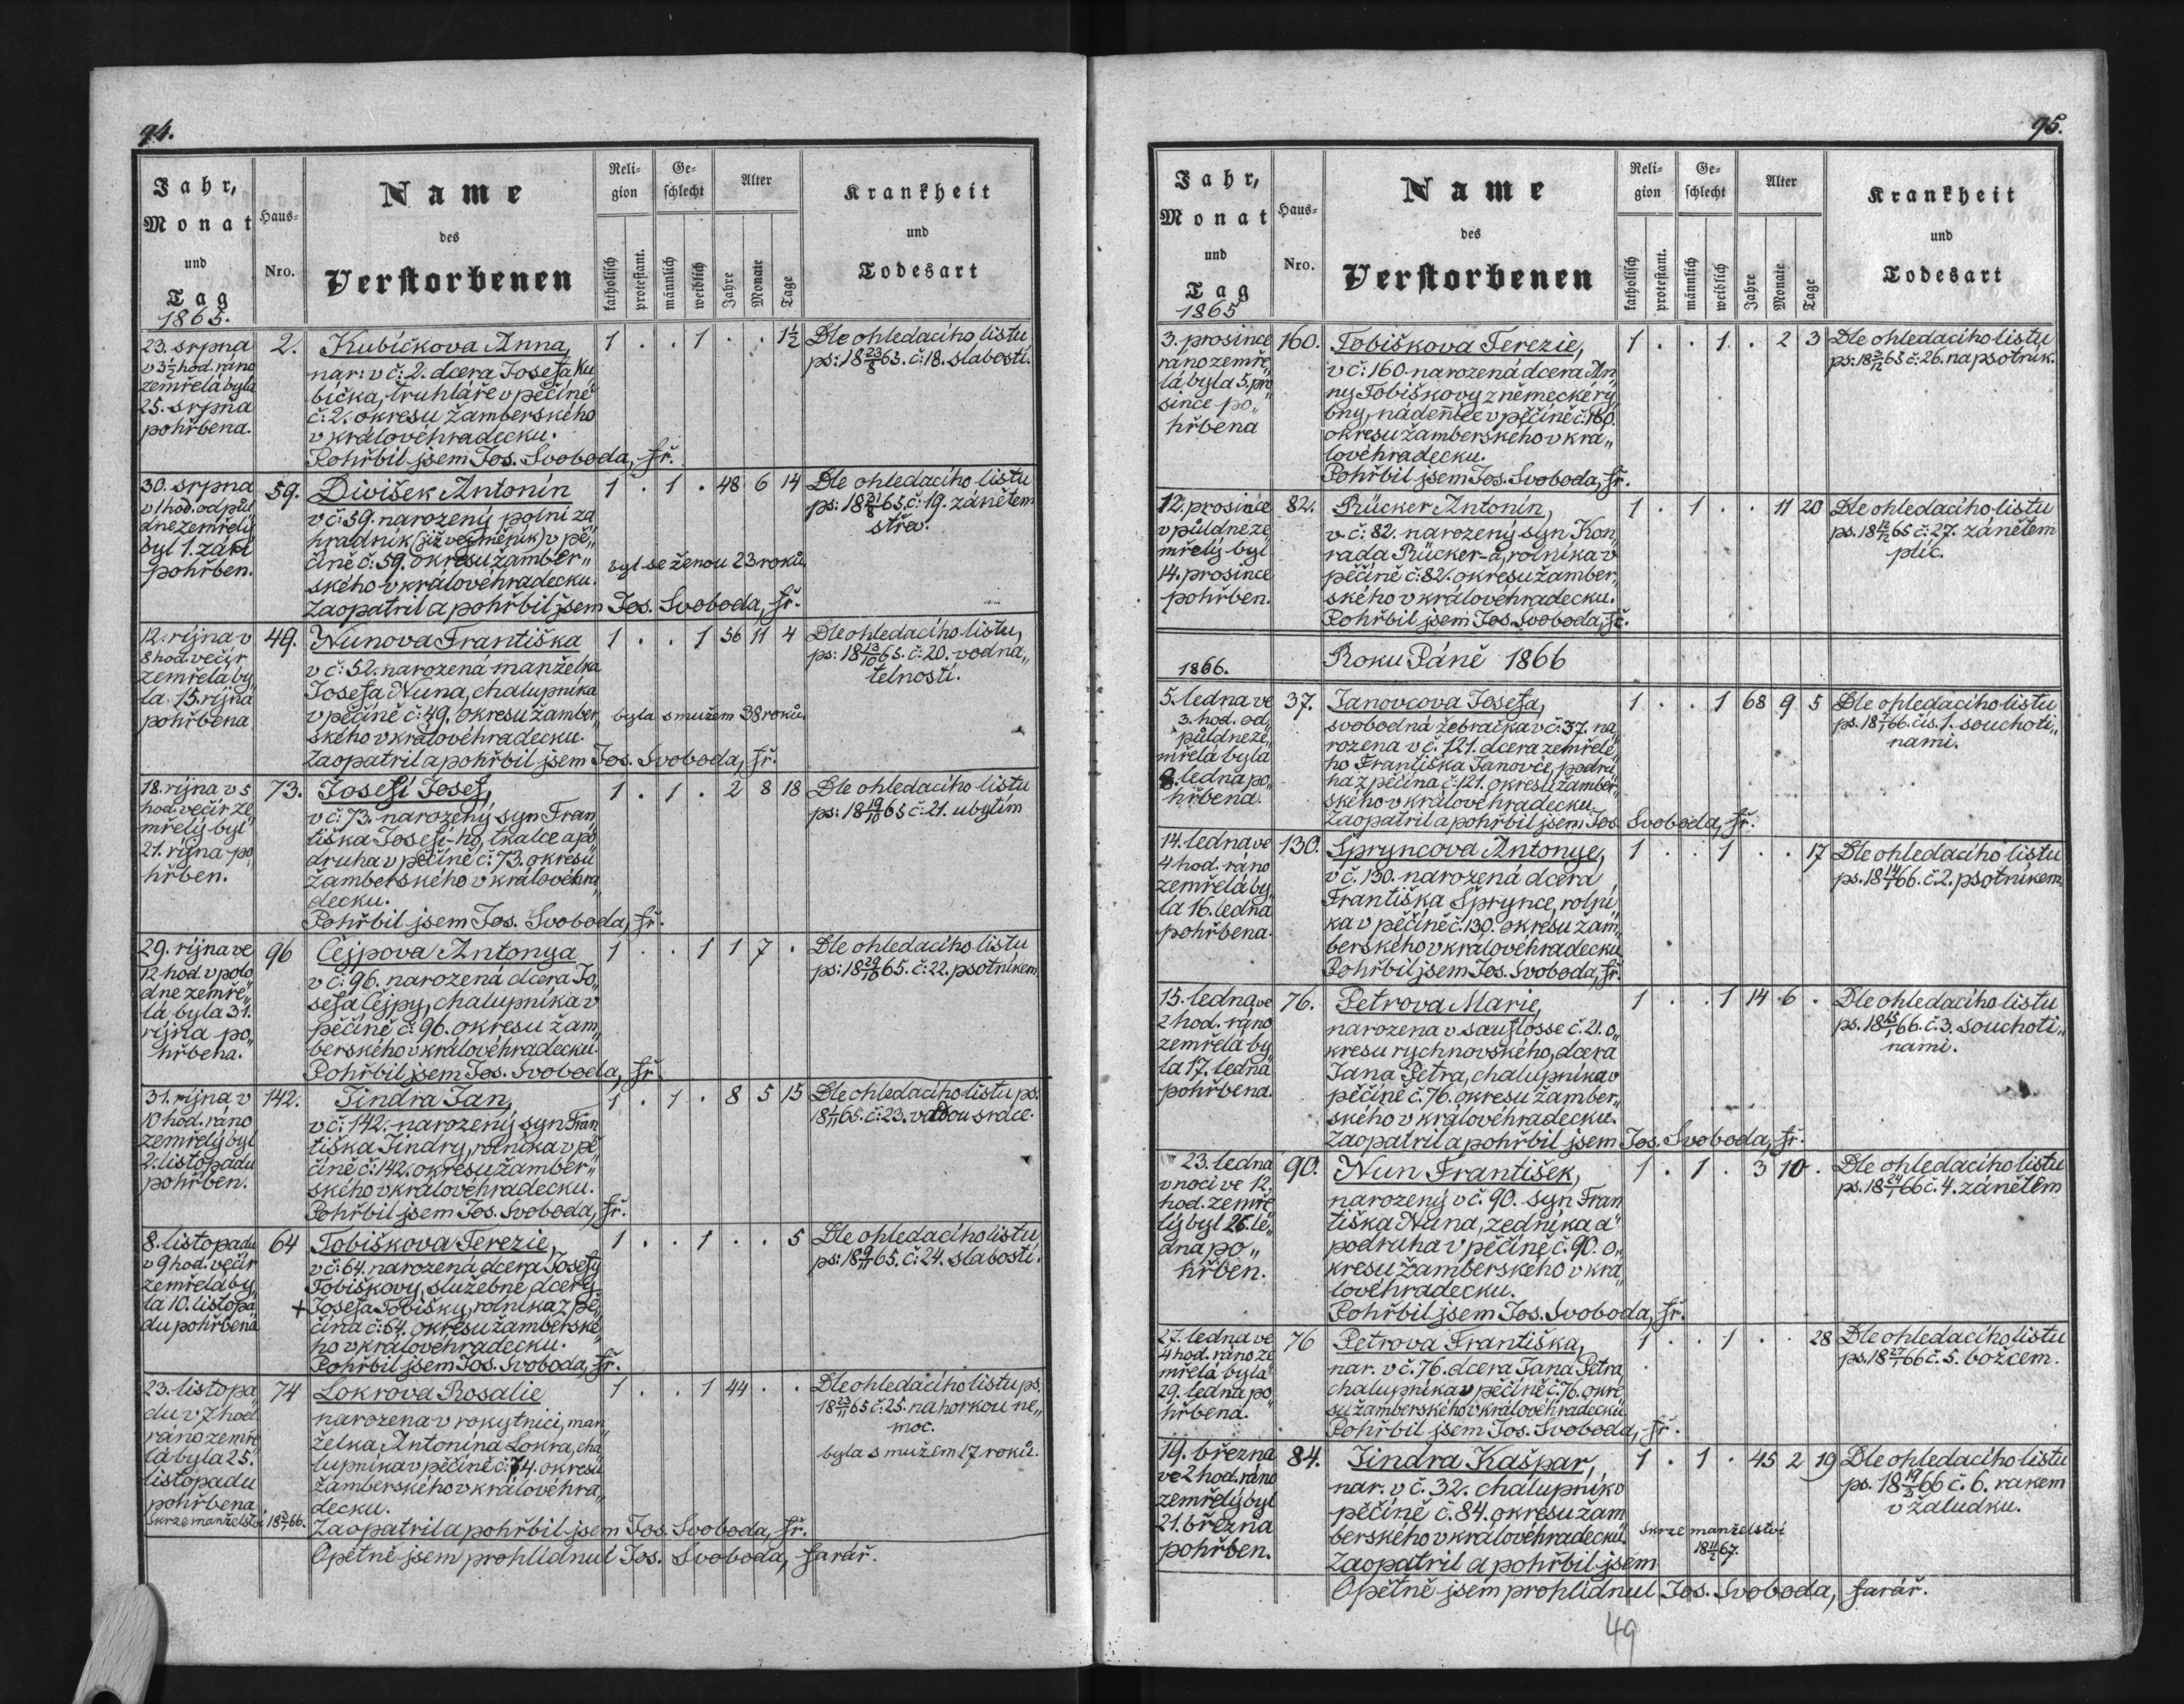 94.
Jahr,
Monat
und
Tag
1865.
Haus-
Nro.
Name
des
Verstorbenen
Reli-
gion
katholisch
protestant.
Ge-
schlecht
männlich
weiblich
Alter
Jahre
Monate
Tage
Krankheit
und
Todesart
23. srpna
v 3½ hod. ráno
zemřelá byla
25. srpna
pohřbena.
2.
Kubičkova Anna,
nar: v č: 2. dcera Josefa Ku
bička, truhláře v pěčíně
č: 2. okresu žamberského
v královéhradecku.
Pohřbil jsem Jos. Svoboda, fř.
1 . . 1 . . 1½
Dle ohledacího listu
ps: 18 23/8 65. č: 18. slabostí.
30. srpna
v 1 hod. odpůl
dne zemřelý
byl 1. září
pohřben.
59.
Divišek Antonín
v č: 59. narozený polní za
hradník (již vejměník) v pě„
číně č: 59. okresu žamber„
ského v královéhradecku.
byl se ženou 23 roků.
Zaopatril a pohřbil jsem Jos. Svoboda, fř.
1 . 1 . 48 6 14
Dle ohledacího listu
ps: 18 31/8 65. č: 19. zánětem
střev.
12. října v
8 hod. večír
zemřelá by„
la 15. října
pohřbena
49.
Nunova Františka
v č: 52. narozená manželka
Josefa Nuna, chalupníka
v pěčíně č: 49. okresu žamber„
byla s mužem 38 roků.
ského v královéhradecku.
Zaopatril a pohřbil jsem Jos. Svoboda, fř.
1 . . 1 56 11 4
Dle ohledacího listu,
ps: 18 13/10 65. č: 20. vodna„
telností.
18. října v 5
hod. večír ze
mřelý byl
21. října po
hřben.
73.
Josefi Josef,
v č: 73. narozený syn Fran„
tiška Josefi-ho, tkalce a po
druha v pěčíně č: 73. okresu
žamberského v královéhra„
decku.
Pohřbil jsem Jos. Svoboda, fř.
1 . 1 . 2 8 18
Dle ohledacího listu
ps: 18 19/10 65 č: 21. ubytím
29. října ve
12 hod. v polo
dne zemře„
lá byla 31.
října po„
hřbena.
96
Čejpova Antonya
v č: 96. narozená dcera Jo„
sefa Čejpy, chalupníka v
pěčíně č: 96. okresu žam„
berského v královéhradecku.
Pohřbil jsem Jos. Svoboda, fř.
1 . . 1 1 7 .
Dle ohledacího listu
ps: 18 29/10 65. č: 22. psotníkem.
31. října v
10 hod. ráno
zemřelý byl
2. listopadu
pohřben.
142.
Jindra Jan,
v č: 142. narozený syn Fran
tiška Jindry, rolníka v pě
číně č: 142. okresu žamber„
ského v královéhradecku.
Pohřbil jsem Jos. Svoboda, fř.
1 . 1 . 8 5 15
Dle ohledacího listu ps:
18 1/11 65. č: 23. vadou srdce.
8. listopadu
v 9 hod. večír
zemřelá by„
la 10. listopa
du pohřbena
64
Tobiškova Terezie,
v č: 64. narozená dcera Josefy
Tobiškovy, služebné, dcery
+ Josefa Tobišky, rolníka z pě„
čína č: 64. okresu žamberské
ho v královéhradecku.
Pohřbil jsem Jos. Svoboda, fř.
1 . . 1 . . 5
Dle ohledacího listu
ps: 18 9/11 65. č: 24. slabostí.
23. listopa
du v 7 hod.
ráno zemře
lá byla 25.
listopadu
pohřbena
skrze manželství 18 2/1 66.
74
Lokrova Rosalie
narozena v rokytnici, man
želka Antonína Lokra, cha
lupníka v pěčíně č: 74. okresu
žamberského v královéhra„
decku.
Zaopatril a pohřbil jsem Jos. Svoboda, fř.
1 . . 1 44 . .
Dle ohledacího listu ps.
18 23/11 65 č: 25. na horkou ne„
moc.
byla s mužem 17 roků.
Opětně jsem prohlídnul Jos. Svoboda, farář.
95.
Jahr,
Monat
und
Tag
1865
Haus-
Nro.
Name
des
Verstorbenen
Reli-
gion
katholisch
protestant.
Ge-
schlecht
männlich
weiblich
Alter
Jahre
Monate
Tage
Krankheit
und
Todesart
3. prosince
ráno zemře„
lá byla 5. pro
since po„
hřbena
160.
Tobiškova Terezie,
v č: 160. narozená dcera An„
ny Tobiškovy z německé ry„
bny, nádennice v pěčíně č: 160.
okresu žamberského v krá„
lovéhradecku.
Pohřbil jsem Jos. Svoboda, fř.
1 . . 1 . 2 3
Dle ohledacího listu
ps: 18 3/12 65 č: 26. na psotník.
12. prosince
v půldne ze
mřelý byl
14. prosince
pohřben.
82.
Rücker Antonín,
v č: 82. narozený syn Kon„
rada Rücker-a, rolníka v
pěčíně č: 82. okresu žamber„
ského v královéhradecku.
Pohřbil jsem Jos. Svoboda, fř.
1 . 1 . . 11 20
Dle ohledacího listu
ps. 18 12/12 65 č: 27. zánětem
plíc.
1866.
Roku Páně 1866
5. ledna ve
3. hod. od„
půldne ze„
mřelá byla
8. ledna po„
hřbena.
37.
Janovcova Josefa,
svobodná žebračka v č: 37. na„
rozena v č. 121. dcera zemřelé„
ho Františka Janovce, podru„
ha z pěčína č: 121. okresu žamber„
ského v královéhradecku.
Zaopatril a pohřbil jsem Jos. Svoboda, fř.
1 . . 1 68 9 5
Dle ohledacího listu
ps. 18 7/1 66. čís. 1. souchoti„
nami.
14. ledna ve
4 hod. ráno
zemřelá by„
la 16. ledna
pohřbena.
130.
Spryncova Antonye,
v č. 130. narozená dcera
Františka Sprynce, rolní„
ka v pěčíně č. 130. okresu žam„
berského v královéhradecku
Pohřbil jsem Jos. Svoboda, fř.
1 . . 1 . . 17
Dle ohledacího listu
ps. 18 14/1 66. č. 2. psotníkem.
15. ledna ve
2 hod. ráno
zemřelá by„
la 17. ledna
pohřbena.
76.
Petrova Marie,
narozena v sauflosse č. 21. o„
kresu rychnovského, dcera
Jana Petra, chalupníka v
pěčíně č. 76. okresu žamber„
ského v královéhradecku.
Zaopatril a pohřbil jsem Jos. Svoboda, fř.
1 . . 1 14 6 .
Dle ohledacího listu
ps. 18 15/1 66. č. 3. souchoti„
nami.
23. ledna
v noci ve 12.
hod. zemře
lý byl 26. le„
dna po„
hřben.
90.
Nun František,
narozený v č. 90. syn Fran
tiška Nuna, zedníka a
podruha v pěčíně č. 90. o„
kresu žamberského v krá„
lovéhradecku.
Pohřbil jsem Jos. Svoboda, fř.
1 . 1 . 3 10 .
Dle ohledacího listu
ps. 18 24/1 66 č. 4. zánětem
27. ledna ve
4 hod. ráno ze
mřelá byla
29. ledna po„
hřbena.
76
Petrova Františka,
nar. v č. 76. dcera Jana Petra,
chalupníka v pěčíně č. 76. okre„
su žamberského v královéhradecku.
Pohřbil jsem Jos. Svoboda, fř.
1 . . 1 . . 28
Dle ohledacího listu
ps. 18 27/1 66 č. 5. božcem.
19. března
ve 2 hod. ráno
zemřelý byl
21. března
pohřben.
84.
Jindra Kašpar,
nar. v č. 32. chalupník v
pěčíně č. 84. okresu žam„
berského v královéhradecku.
skrze manželství
18 11/2 67.
Zaopatril a pohřbil jsem
1 . 1 . 45 2 19
Dle ohledacího listu
ps. 18 19/3 66 č. 6. rakem
v žaludku.
Opětně jsem prohlídnul Jos. Svoboda, farář.
49